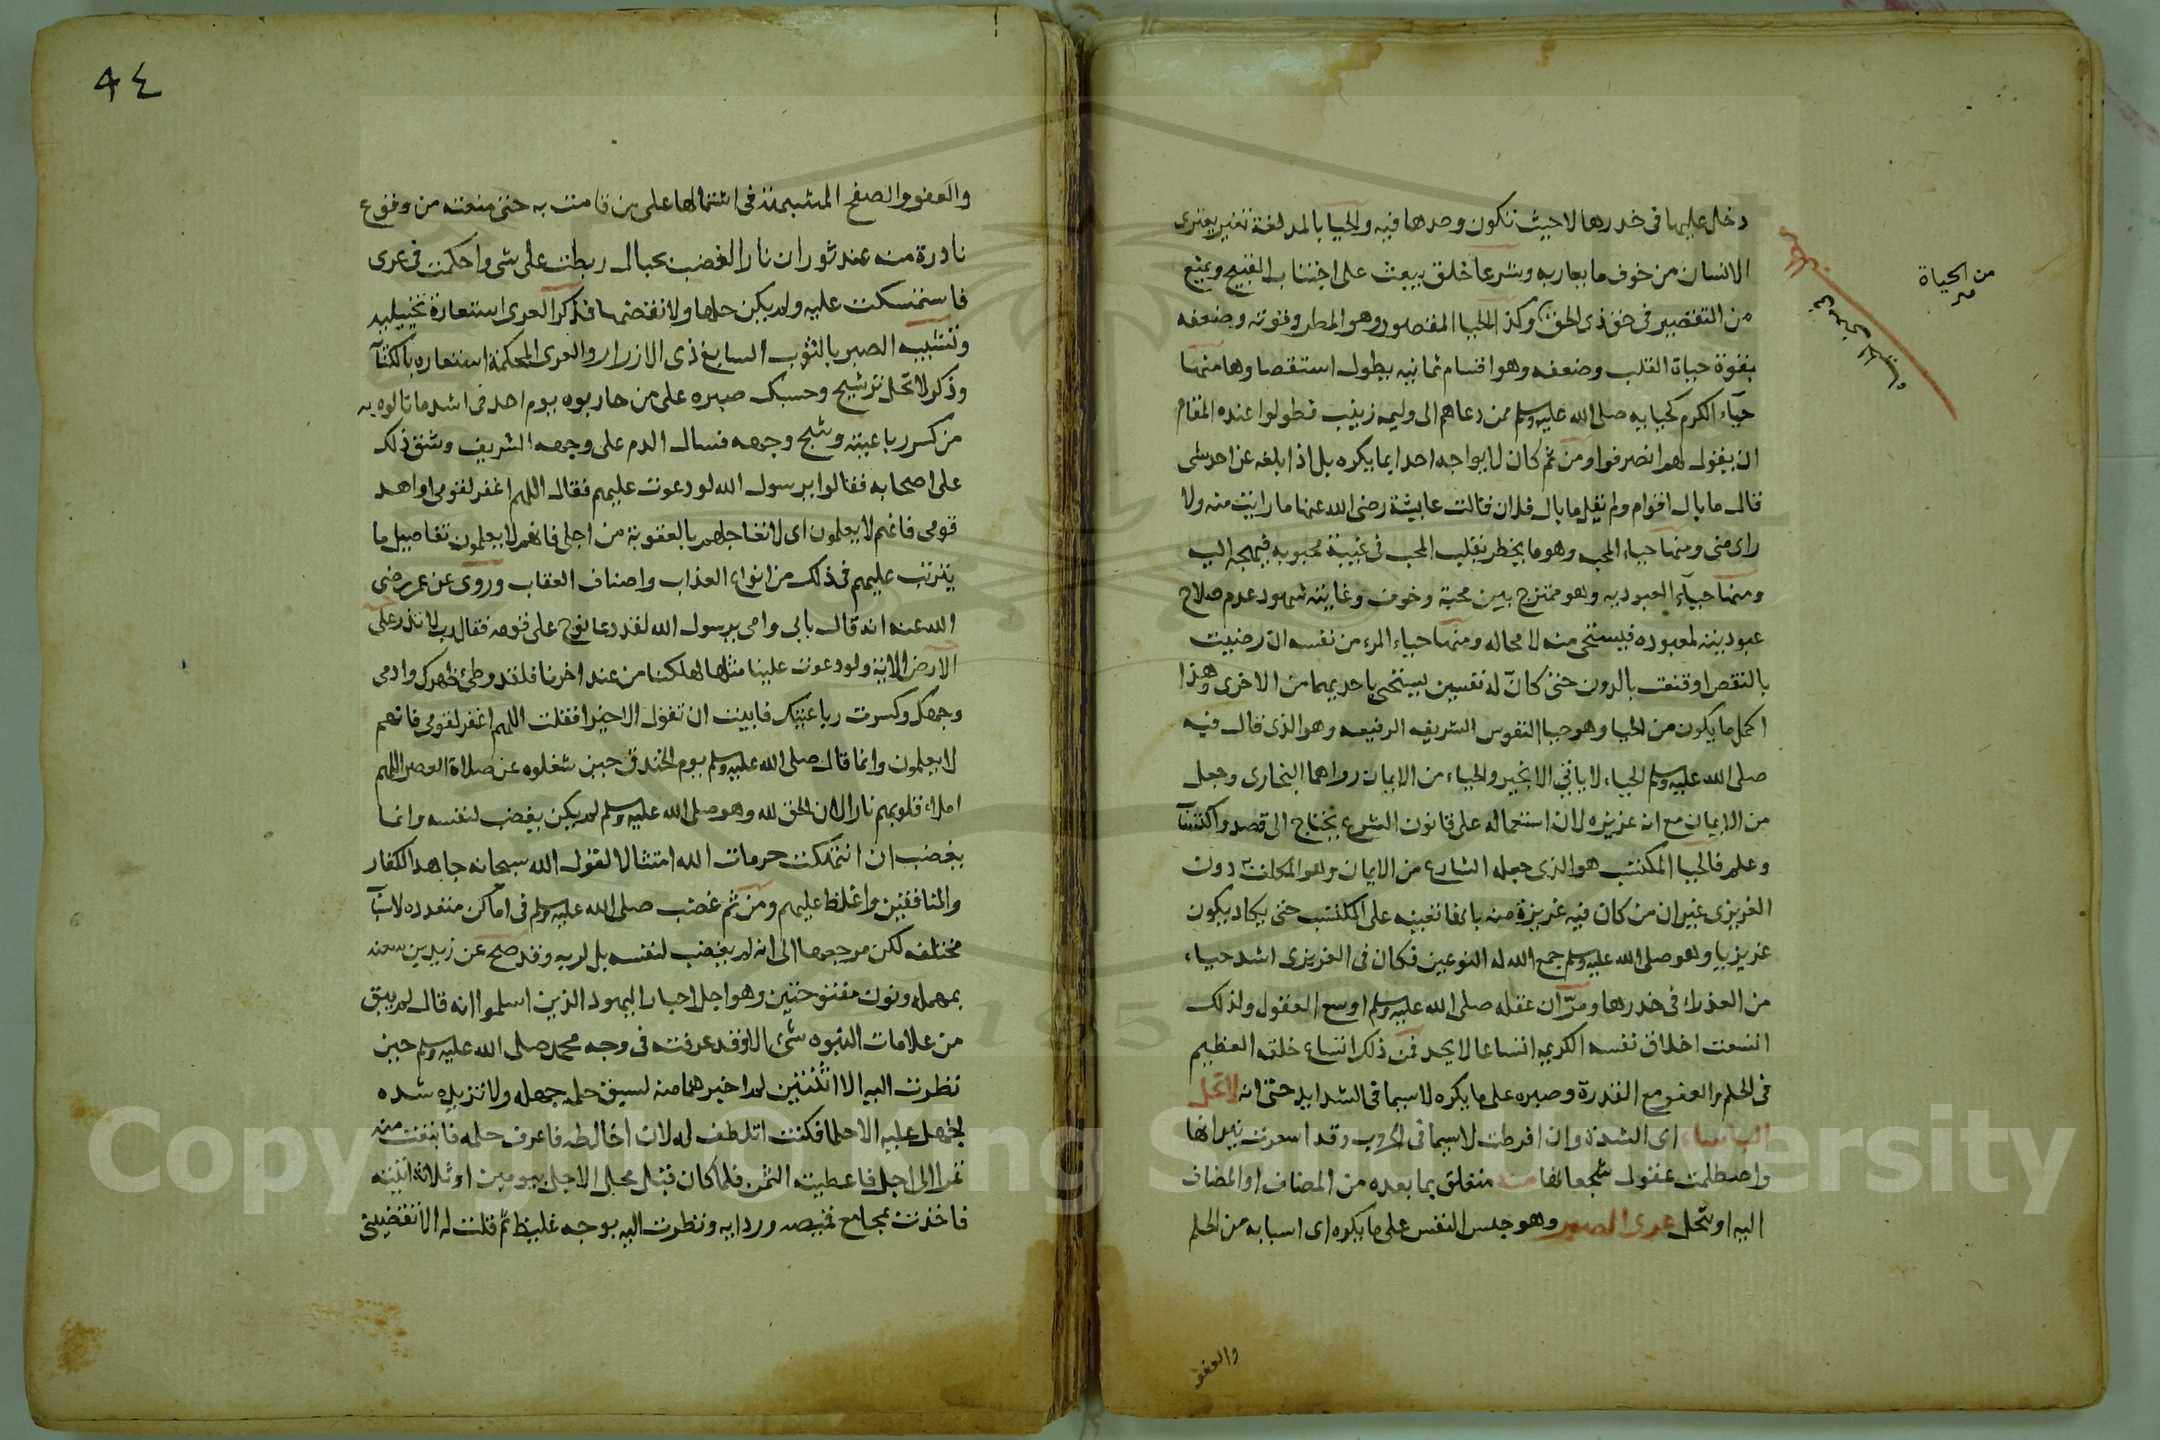 دخل عليها في خدرها لا حيث تكون وحدها فيه والحيا بالمد لغة تغير يعتري
الانسان من خوف ما يعاب به وشرعا خلق يبعث على اجتناب القبيح ويمنع
من التقصير في حق ذي الحق وكذا الحيا المقصور وهو المطر وقوته وضعفه
بقوة حياة القلب وضعفه وهو اقسام ثمانية يطول استقصاوها منها
حيآء الكرم كحيايه صلى الله عليه وسلم ممن دعاهم الى وليمة زينب فطولوا عنده المقام
ان يقول لهم انصرفوا ومن ثم كان لا يواجه احدا بما يكره بل اذا بلغه عن احد شى
قال ما بال اقوام ولم يقل ما بال فلان قالت عايشة رضى الله عنها ما رايت منه ولا
راى منى ومنها حياء المحب وهو ما يخطر بقلب المحب في غيبة محبوبه فيهيجه اليه
ومنها حيآء العبوديه وهو ممتزج بين محبة وخوف وغايته شهود عدم صلاح
عبوديته لمعبوده فيستحى منه لا محاله ومنها حياء المرء من نفسه ان رضيت
بالنقص او قنعت بالدون حتى كانّ له نفسين يستحى باحديهما من الاخرى وهذا
اكمل ما يكون من الحيا وهو حيا النفوس الشريفه الرفيعه وهو الذى قال فيه
صلى الله عليه وسلم الحياء لا ياتى الا بخير والحياء من الايمان رواهما البخارى وجعل
من الايمان مع انه غريزه لان استعماله على قانون الشرع يحتاج الى قصد واكتساب
وعلم فالحيا المكتسب هو الذى جعله الشارع من الايمان وهو المكلف به دون
الغريزى غير ان من كان فيه غريزة منه بانها تعينه على المكتسب حتى يكاد يكون
غريزيا وهو صلى الله عليه وسلم جمع الله له النوعين فكان في الغريزى اشد حياء
من العذرا في خدرها ومرّ ان عقله صلى الله عليه وسلم اوسع العقول ولذلك
اتسعت اخلاق نفسه الكريمه اتساعا لا يحد فمن ذلك اتساع خلقه العظيم
في الحلم والعفو مع القدرة وصبره على ما يكره لا سيما في الشدايد حتى انه لا تحل
الباساء اى الشدة وان افرطت لا سيما في الحروب وقد اسعرت نيرانها
واصطلمت عقول شجعانها منه متعلق بما بعده من المضاف او المضاف
اليه او بتحل عرى الصبر وهو حبس النفس على ما يكره اى اسبابه من الحلم
والعفو
من الحياة
٩٤
والعفو والصفح المشبهة في اشتمالها على من قامت به حتى منعته من وقوع
نادرة منه عند ثوران نار الغضب بحبال ربطت على شى واحكمت في عرى
فاستمسكت عليه ولم يكن حلها ولا نقضها فذكر العرى استعارة تخييليه
وتشبيه الصبر بالثوب السابغ ذى الازرار والعرى المحكمة استعاره بالكناية
وذكر لا تحل ترشيح وحسبك صبره على من حاربوه يوم احد في اشد ما نالوه به
من كسر رباعيته وشج وجهه فسال الدم على وجهه الشريف وشق ذلك
على اصحابه فقالوا يرسول الله لو دعوت عليهم فقال اللهم اغفر لقومى او اهد
قومى فانهم لا يعلمون اى لا تعاجلهم بالعقوبة من اجلى فانهم لا يعلمون تفاصيل ما
يترتب عليهم في ذلك من انواع العذاب واصناف العقاب وروى عن عمر رضى
الله عنه انه قال بابى وامى يرسول الله لقد دعا نوح على قومه فقال رب لا تذر على
الارض الاية ولو دعوت علينا مثلها لهلكنا من عند اخرنا فلقد وطئ ظهرك وادمى
وجهك وكسرت رباعيتك فابيت ان تقول الا خيرا فقلت اللهم اغفر لقومى فانهم
لا يعلمون وانما قال صلى الله عليه وسلم يوم الخندق حين شغلوه عن صلاة العصر اللهم
املاء قلوبهم نارا لان الحق لله وهو صلى الله عليه وسلم لم يكن يغضب لنفسه وانما
يغضب ان انتهكت حرمات الله امتثالا لقول الله سبحانه جاهد الكفار
والمنافقين واغلظ عليهم ومن ثم غضب صلى الله عليه وسلم في اماكن متعدده لاسباب
مختلفه لكن مرجعها الى انه لم يغضب لنفسه بل لربه وقد صح عن زيد بن سعنه
بمهملة ونون مفتوحتين وهو اجل احبار اليهود الذين اسلموا انه قال لم يبق
من علامات النبوه شئ الا وقد عرفته في وجه محمد صلى الله عليه وسلم حين
نظرت اليه الا اثنتين لم اخبرهما منه لسبق حلمه جهله ولا تزيده شده
الجهل عليه الا حلما فكنت اتلطف له لان اخالطه فاعرف حلمه فابتعت منه
تمرا الى اجل فاعطيته الثمن فلما كان قبل محل الاجل بيومين او ثلاثة اتيته
فاخذت بمجامع قميصه وردايه ونظرت اليه بوجه غليظ ثم قلت له الا تقضينى